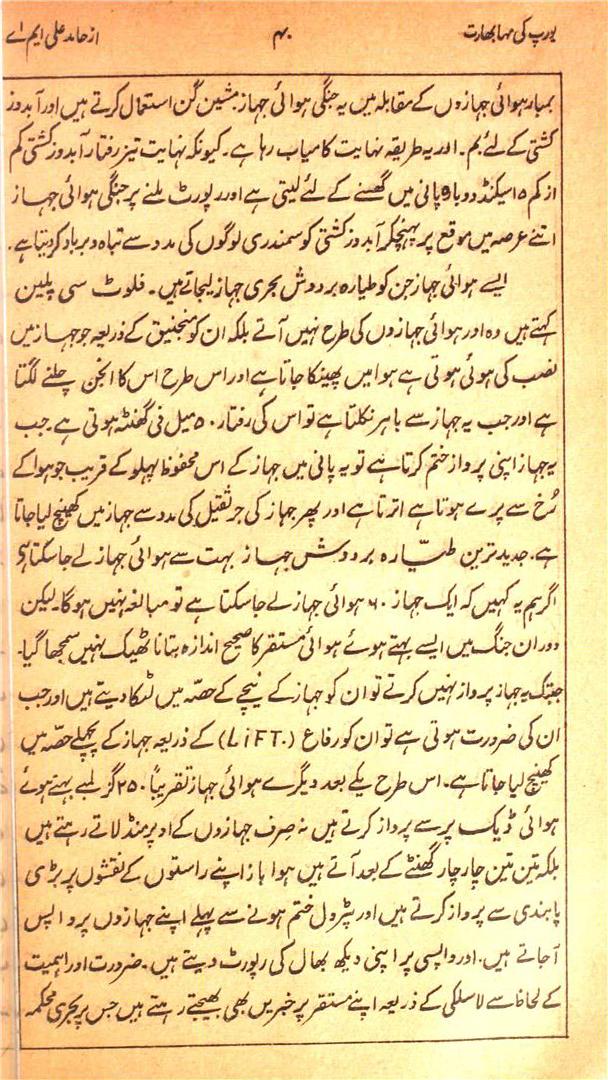 یورپ کی مہابھارت ۴۰ از حامد علی ایم اے
بمبار ہوائی جہازوں کے مقابلہ میں یہ جنگی ہوائی جہاز مشین گن استعمال کرتے ہیں اور آبدوز
کشتی کے لئے بم۔ اور یہ طریقہ نہایت کامیاب رہا ہے۔ کیونکہ نہایت تیز رفتار آبدوز کشتی کم
از کم ۱۵ سیکنڈ دوبارہ پانی میں گھسنے کے لئے لیتی ہے اور رپورٹ ملنے پر جنگی ہوائی جہاز
اتنے عرصہ میں موقع پر پہنچکر آبدوز کشتی کو سمندری لوگوں کی مدد سے تباہ و برباد کر دیتا ہے۔
ایسے ہوائی جہاز جن کو طیارہ بردوش بحری جہاز لیجاتے ہیں۔ فلوٹ سی پلین
کہتے ہیں وہ اور ہوائی جہازوں کی طرح نہیں آتے بلکہ ان کو منجنیق کے ذریعہ جو جہاز میں
نصب کی ہوئی ہوتی ہے ہوا میں پھینکا جاتا ہے اور اس طرح اس کا انجن چلنے لگتا
ہے اور جب یہ جہاز سے باہر نکلتا ہے تو اس کی رفتار ۵۰ میل فی گھنٹہ ہوتی ہے۔ جب
یہ جہاز اپنی پرواز ختم کرتا ہے تو یہ پانی میں جہاز کے اس محفوظ پہلو کے قریب جو ہوا کے
رُخ سے پرے ہوتا ہے اترتا ہے اور پھر جہاز کی جرثقیل کی مدد سے جہاز میں کھینچ لیا جاتا
ہے۔ جدید ترین طیّارہ بردوش جہاز بہت سے ہوائی جہاز لے جا سکتا ہے
اگر ہم یہ کہیں کہ ایک جہاز ۶۰ ہوائی جہاز لے جا سکتا ہے تو مبالغہ نہیں ہوگا۔ لیکن
دوران جنگ میں ایسے بہتے ہوئے ہوائی مستقر کا صحیح اندازہ بتانا ٹھیک نہیں سمجھا گیا۔
جبتک یہ جہاز پرواز نہیں کرتے تو ان کو جہاز کے نیچے کے حصّہ میں لٹکا دیتے ہیں اور جب
ان کی ضرورت ہوتی ہے تو ان کو رفاع (LiFT.) کے ذریعہ جہاز کے پچھلے حصّہ میں
کھینچ لیا جاتا ہے۔ اس طرح یکے بعد دیگرے ہوائی جہاز تقریباً ۲۵۰ گز لمبے بہتے ہوئے
ہوائی ڈیک پر سے پرواز کرتے ہیں نہ صرف جہازوں کے اوپر منڈلاتے رہتے ہیں
بلکہ تین تین چار چار گھنٹے کے بعد آتے ہیں ہوا باز اپنے راستوں کے نقشوں پر بڑی
پابندی سے پرواز کرتے ہیں اور پٹرول ختم ہونے سے پہلے اپنے جہازوں پر واپس
آ جاتے ہیں۔ اور واپسی پر اپنی دیکھ بھال کی رپورٹ دیتے ہیں۔ ضرورت اور اہمیت
کے لحاظ سے لاسلکی کے ذریعہ اپنے مستقر پر خبریں بھی بھیجتے رہتے ہیں جس پر بحری محکمہ